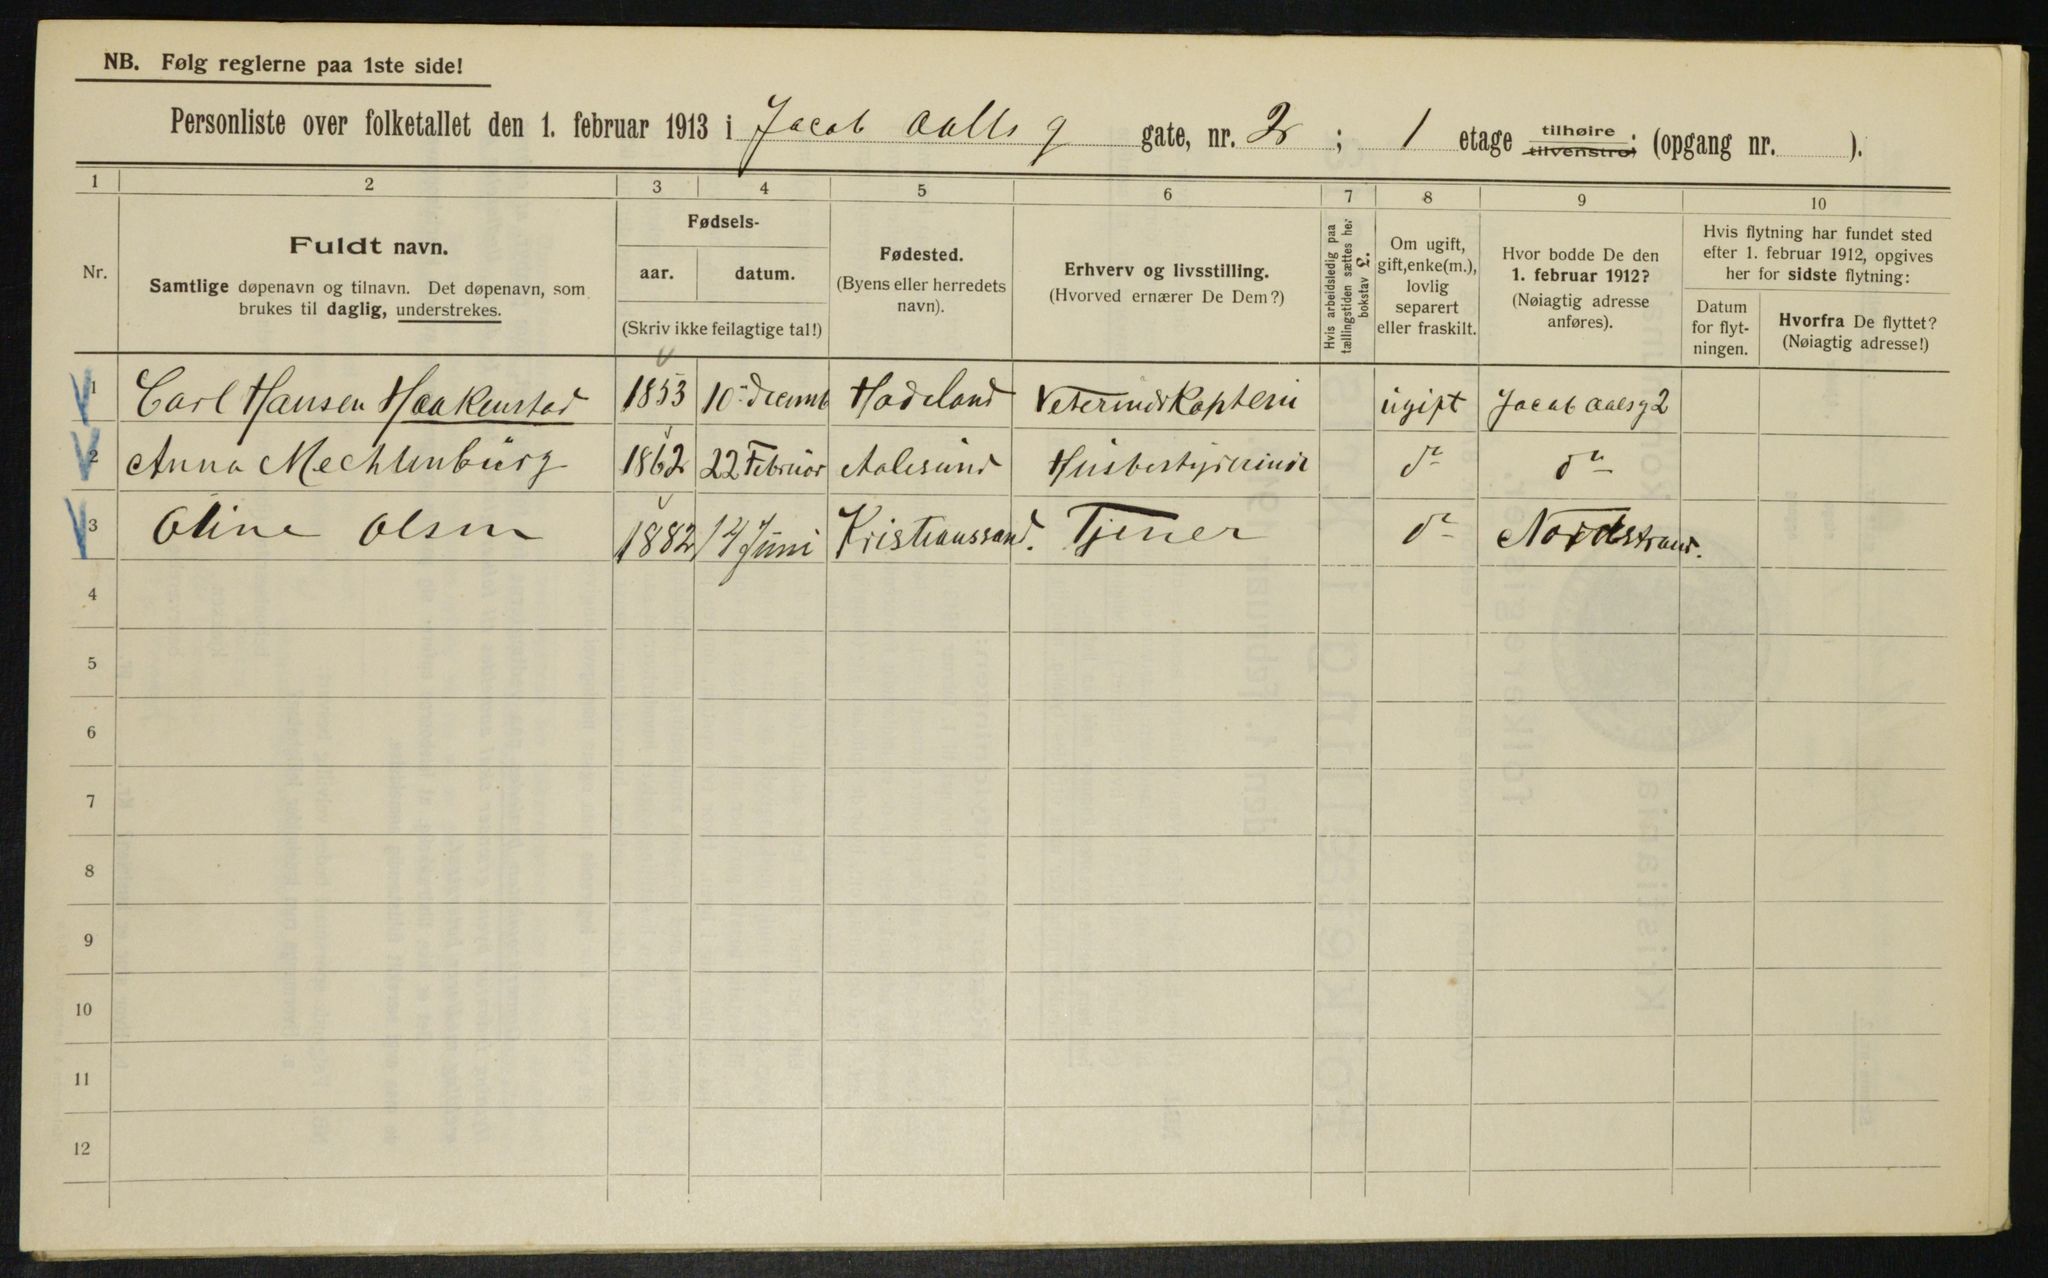 NB. Følg reglerne paa 1ste side!
Personliste over folketallet den 1. februar 1913 i Jacob Aalls g gate, nr. 2 ; 1 etage tilhøire tilvenstre; (opgang nr. ).
1 2 3 4 5 6 7 8 9 10
Nr.
Fuldt navn.
Samtlige døpenavn og tilnavn. Det døpenavn, som
brukes til daglig, understrekes.
Fødsels-
aar. datum.
(Skriv ikke feilagtige tal!)
Fødested.
(Byens eller herredets
navn).
Erhverv og livsstilling.
(Hvorved ernærer De Dem?)
Hvis arbeidsledig paa
tællingstiden sættes her
bokstav L.
Om ugift,
gift, enke(m.),
lovlig
separert
eller fraskilt.
Hvor bodde De den
1. februar 1912?
(Nøiagtig adresse
anføres).
Hvis flytning har fundet sted
efter 1. februar 1912, opgives
her for sidste flytning:
Datum
for flyt-
ningen.
Hvorfra De flyttet?
(Nøiagtig adresse!)
1 Carl Hansen Haakenstad 1853 10 decemb Hadeland Veterinärkaptein ugift Jacob Aalsg 2
2 Anna Mechlenburg 1862 22 Februar Aalesund Husbestyrerinde do do
3 Oline Olsen 1882 14 Juni Kristianssand. Tjener do Nordstrand.
4
5
6
7
8
9
10
11
12